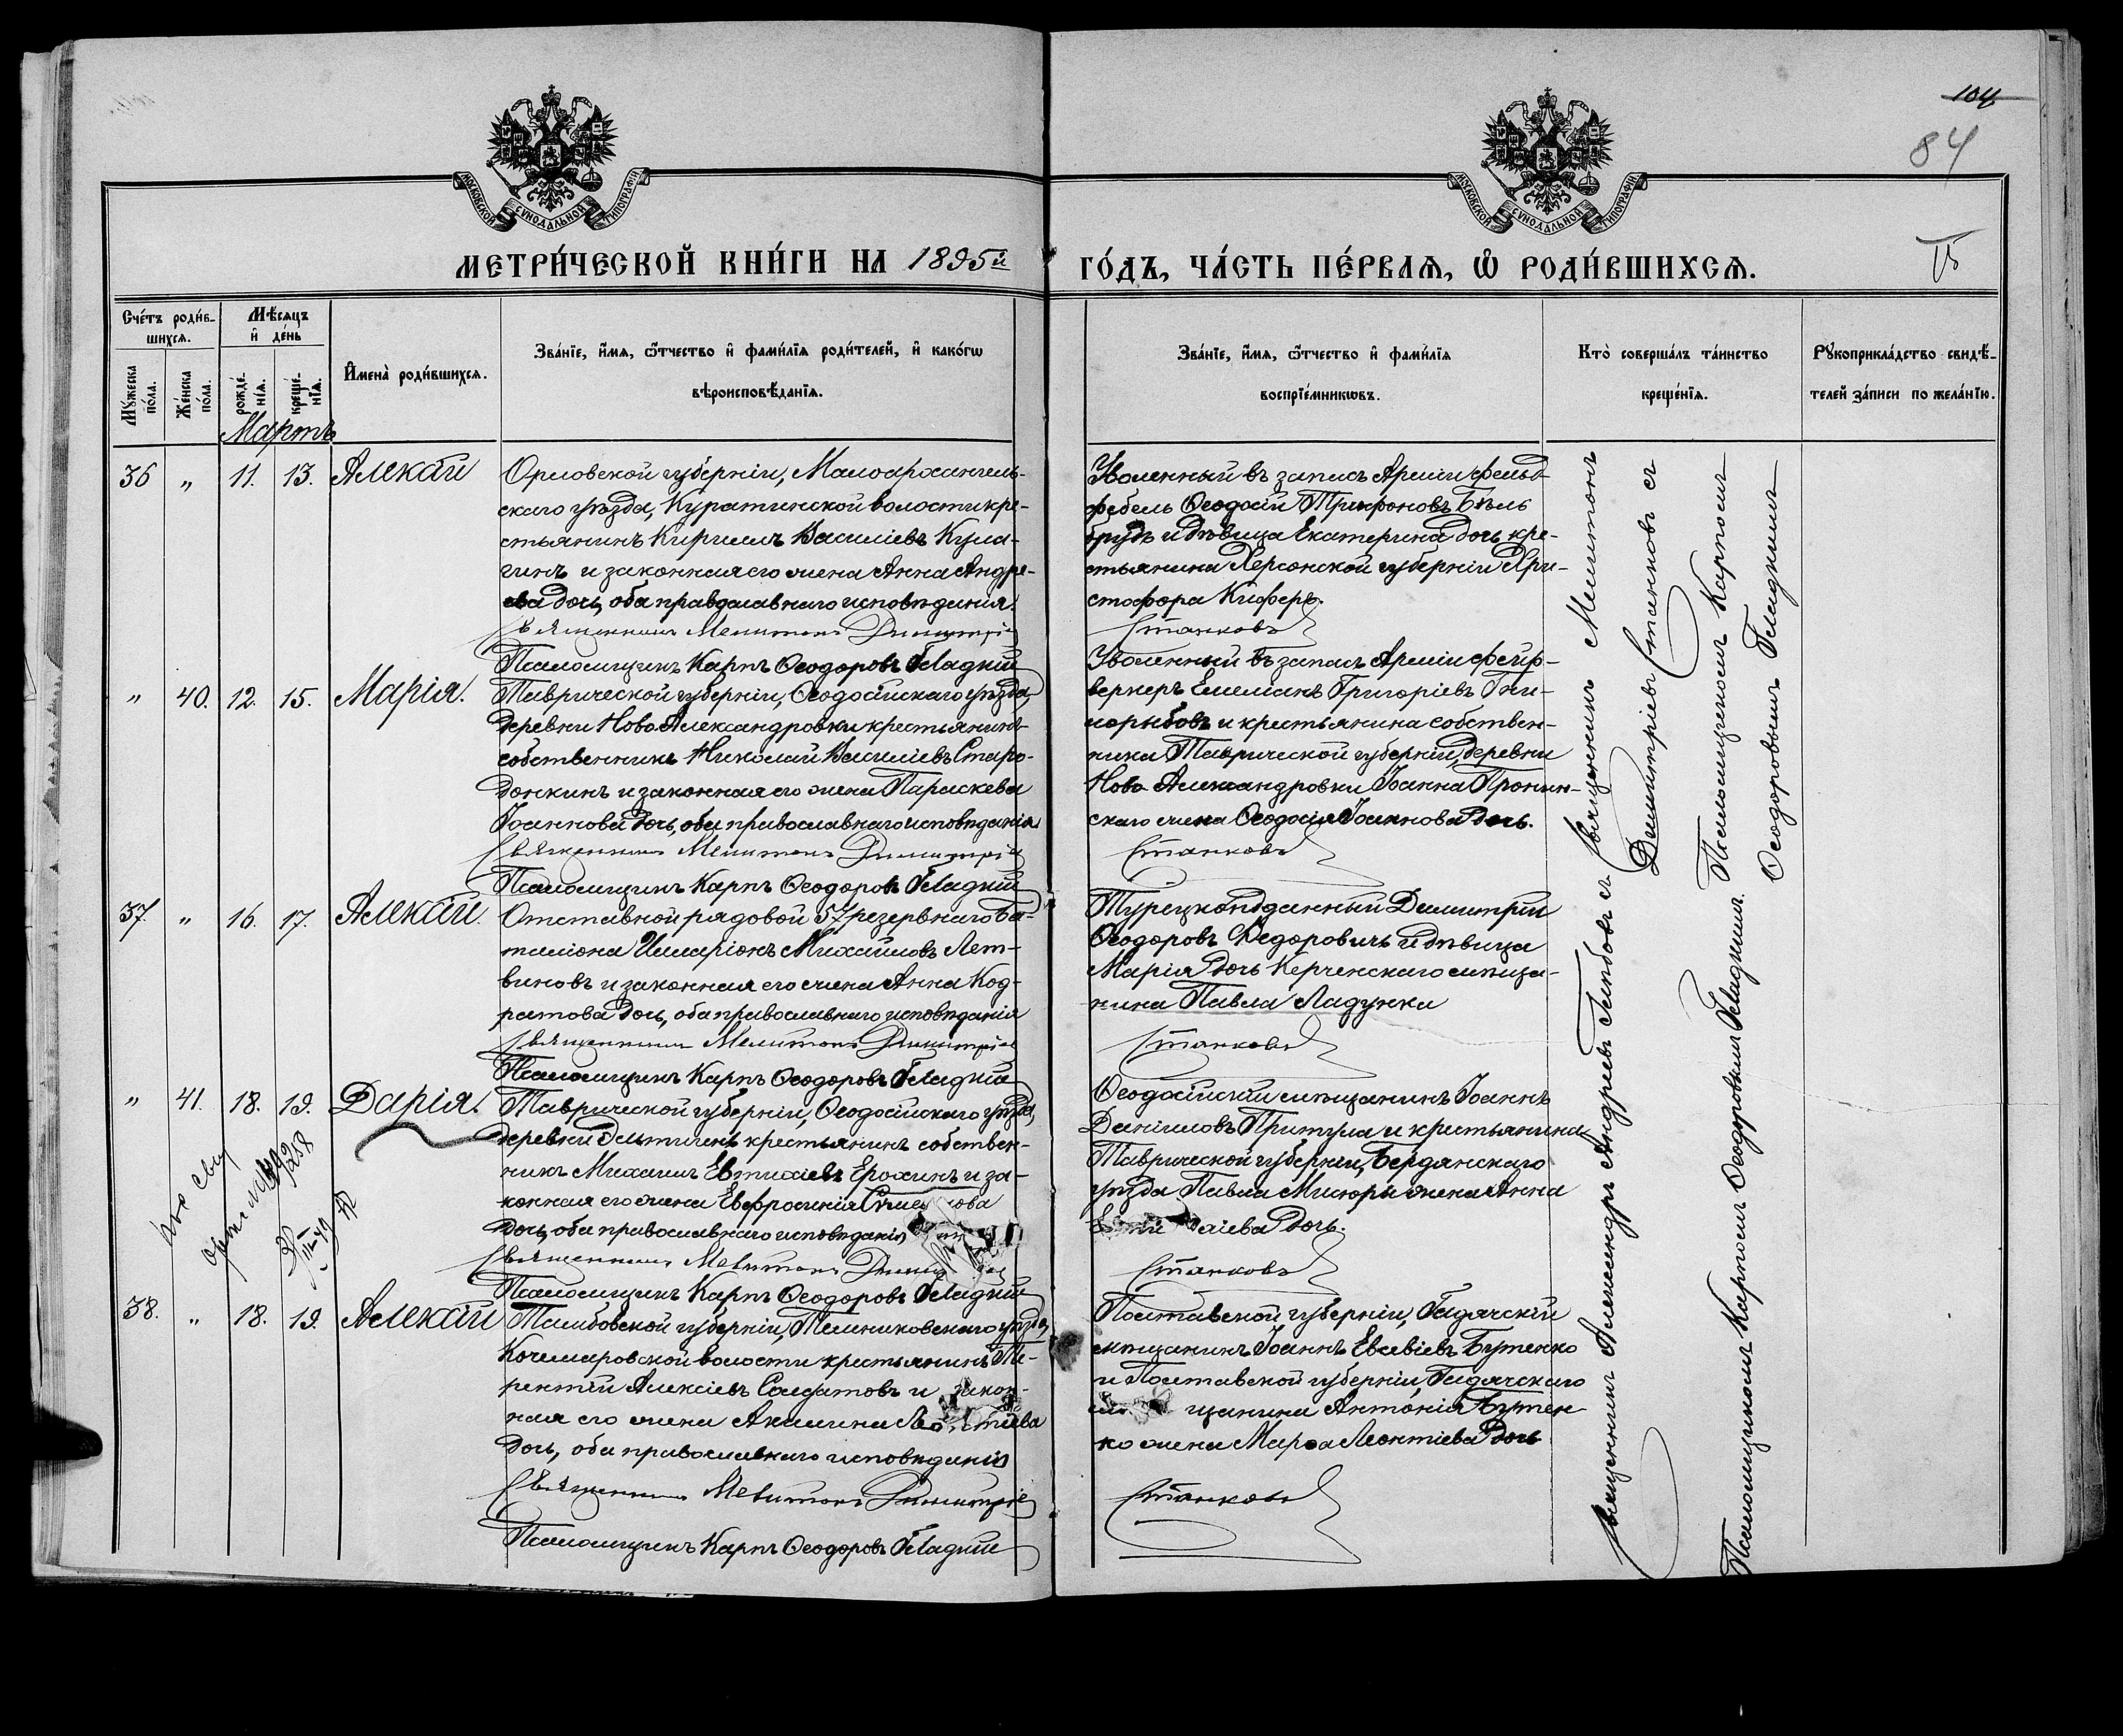 104
84
МОСКОВСКОЙ СѴНОДАЛЬНОЙ ТИПОГРАФІИ
МОСКОВСКОЙ СѴНОДАЛЬНОЙ ТИПОГРАФІИ
МЕТРИ́ЧЕСКОЙ КНИ́ГИ НА 1895й
ГО́ДЪ, ЧА́СТЬ ПЕ́РВАЯ, Ѡ РОДИ́ВШИХСЯ.
Сче́тъ роди́в-
шихся.
Мѣ́сяцъ
и҆ де́нь
Мꙋ́жеска
по́ла.
Же́нска
по́ла.
рожде́-
нїя.
креще́-
нїя.
И҆мена̀ роди́вшихся.
Зва́нїе, и҆́мя, ѻ҆́тчество и҆ фами́лїя роди́телей, и҆ како́гѡ
вѣроисповѣ́данїя.
Зва́нїе, и҆́мя, ѻ҆́тчество и҆ фами́лїя
воспрїе́мникѡвъ.
Кто̀ соверша́лъ та́инство
креще́нїя.
Рꙋкоприкла́дство свидѣ́-
телей за́писи по жела́нїю.
Мартъ
36 „ 11. 13. Алексій
Орловской губерніи, Малоархангель-
скаго уѣзда, Куратинской волости кре-
стьянинъ Кириллъ Василіевъ Кула-
гинъ и законная его жена Анна Андре-
ева дочь, оба православнаго исповѣданія.
Священникъ Мелитонъ Димитріе
Псаломщикъ Карпъ Ѳеодоровъ Гладкій
Уволенный въ запасъ Арміи фельд-
фебель Ѳеодосій Трифоновъ Бѣль
брудъ и дѣвица Екатерина дочь кре-
стьянина Херсонской губерніи Хри-
стофора Киферъ.
Станковъ
„ 40. 12. 15. Марія.
Таврической губерніи, Ѳеодосійскаго уѣзда,
деревни Ново-Александровки крестьянинъ
собственникъ Николай Василіевъ Старо-
донкинъ и законная его жена Параскева
Іоаннова дочь, оба православнаго исповѣданія
Священникъ Мелитонъ Димитріе
Псаломщикъ Карпъ Ѳеодоровъ Гладкій
Уволенный въ запасъ Арміи фейр-
веркеръ Емеліанъ Григоріевъ Гни-
норыбовъ и крестьянина собствен-
ника Таврической губерніи, деревни
Ново Александровки Іоанна Пронин-
скаго жена Ѳеодосія Іоаннова дочь.
Станковъ
37. „ 16. 17. Алексій.
Отставной рядовой 57 резервнаго ба-
таліона Иларіонъ Михайловъ Лет-
виновъ и законная его жена Анна Код-
ратова дочь, оба православнаго исповѣданія
Священникъ Мелитонъ Димитріе
Псаломщикъ Карпъ Ѳеодоровъ Гладкій
Турецкоподданный Димитрій
Ѳеодоровъ Ѳедоровичъ и дѣвица
Марія дочь Керченскаго мѣща-
нина Павла Ладунки
Станковъ
„ 41. 18. 19. Дарія.
Таврической губерніи, Ѳеодосійскаго уѣзда,
деревни крестьянинъ собствен-
никъ Михаилъ Евтихіевъ Ерохинъ и за-
конная его жена Евфросинія
дочь, оба православнаго исповѣданія
Священникъ Мелитонъ
Псаломщикъ Карпъ Ѳеодоровъ Гладкій
Ѳеодосійскій мѣщанинъ Іоаннъ
Даніиловъ Притула и крестьянина
Таврической губерніи, Бердянскаго
уѣзда Павла Мисюры жена Анна
дочь.
Станковъ
38. „ 18. 19. Алексій
Тамбовской губерніи, Темниковскаго уѣзда,
Кочемаровской волости крестьянинъ Те-
рентій Алексіевъ Солдатовъ и закон-
ная его жена Акилина
дочь, оба православнаго исповѣданія
Священникъ Мелитонъ Димитріе
Псаломщикъ Карпъ Ѳеодоровъ Гладкій
Полтавской губерніи, Гадячскій
мѣщанинъ Іоаннъ Евсевіевъ Бутенко
и Полтавской губерніи, Гадячскаго
мѣщанина Антонія Бутен-
ко жена Марѳа Леонтіева дочь
Станковъ
Священникъ Александръ Андреевъ Глѣбовъ съ Священникъ Мелитонъ
Димитріевъ Станковъ съ
Псаломщикомъ Карпомъ Ѳеодоровымъ Гладкимъ. Псаломщикомъ Карпомъ
Ѳеодоровымъ Гладкимъ